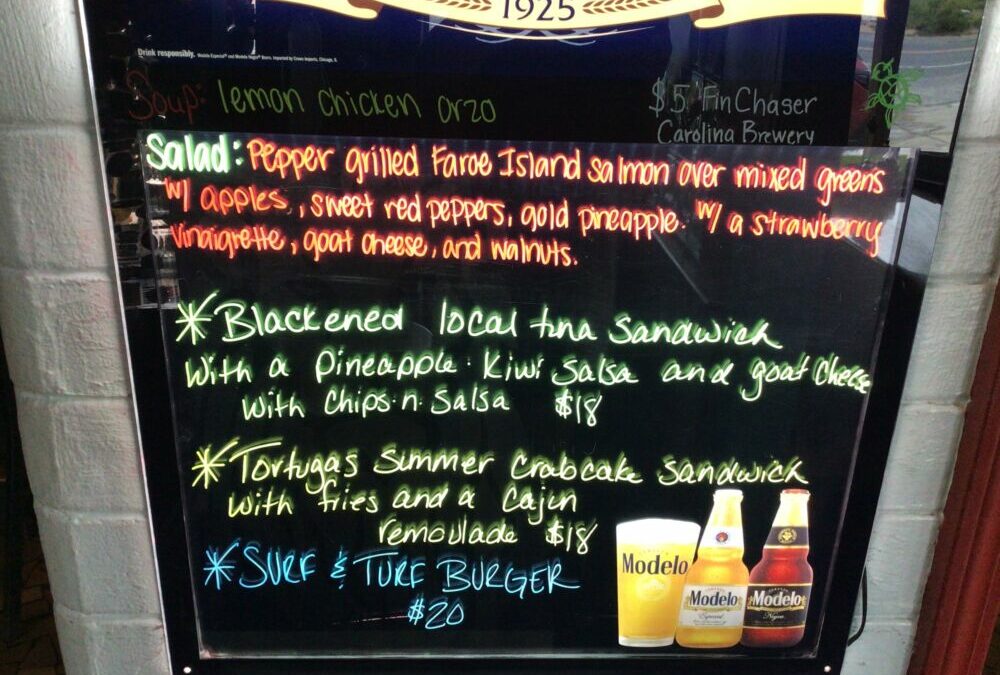 1925
Drink responsibly.
Soup: lemon chicken orzo
$5 FinChaser
Carolina Brewery
Salad: Pepper grilled Faroe Island salmon over mixed greens
w/ apples, sweet red peppers, gold pineapple. w/ a strawberry
vinaigrette, goat cheese, and walnuts.
*Blackened local tuna sandwich
With a pineapple·kiwi salsa and goat cheese
with chips·n·salsa $18
*Tortugas Summer Crabcake Sandwich
with fries and a Cajun
remoulade $18
*SURF & TURF BURGER
$20
Modelo
Modelo
Especial
Modelo
Negra